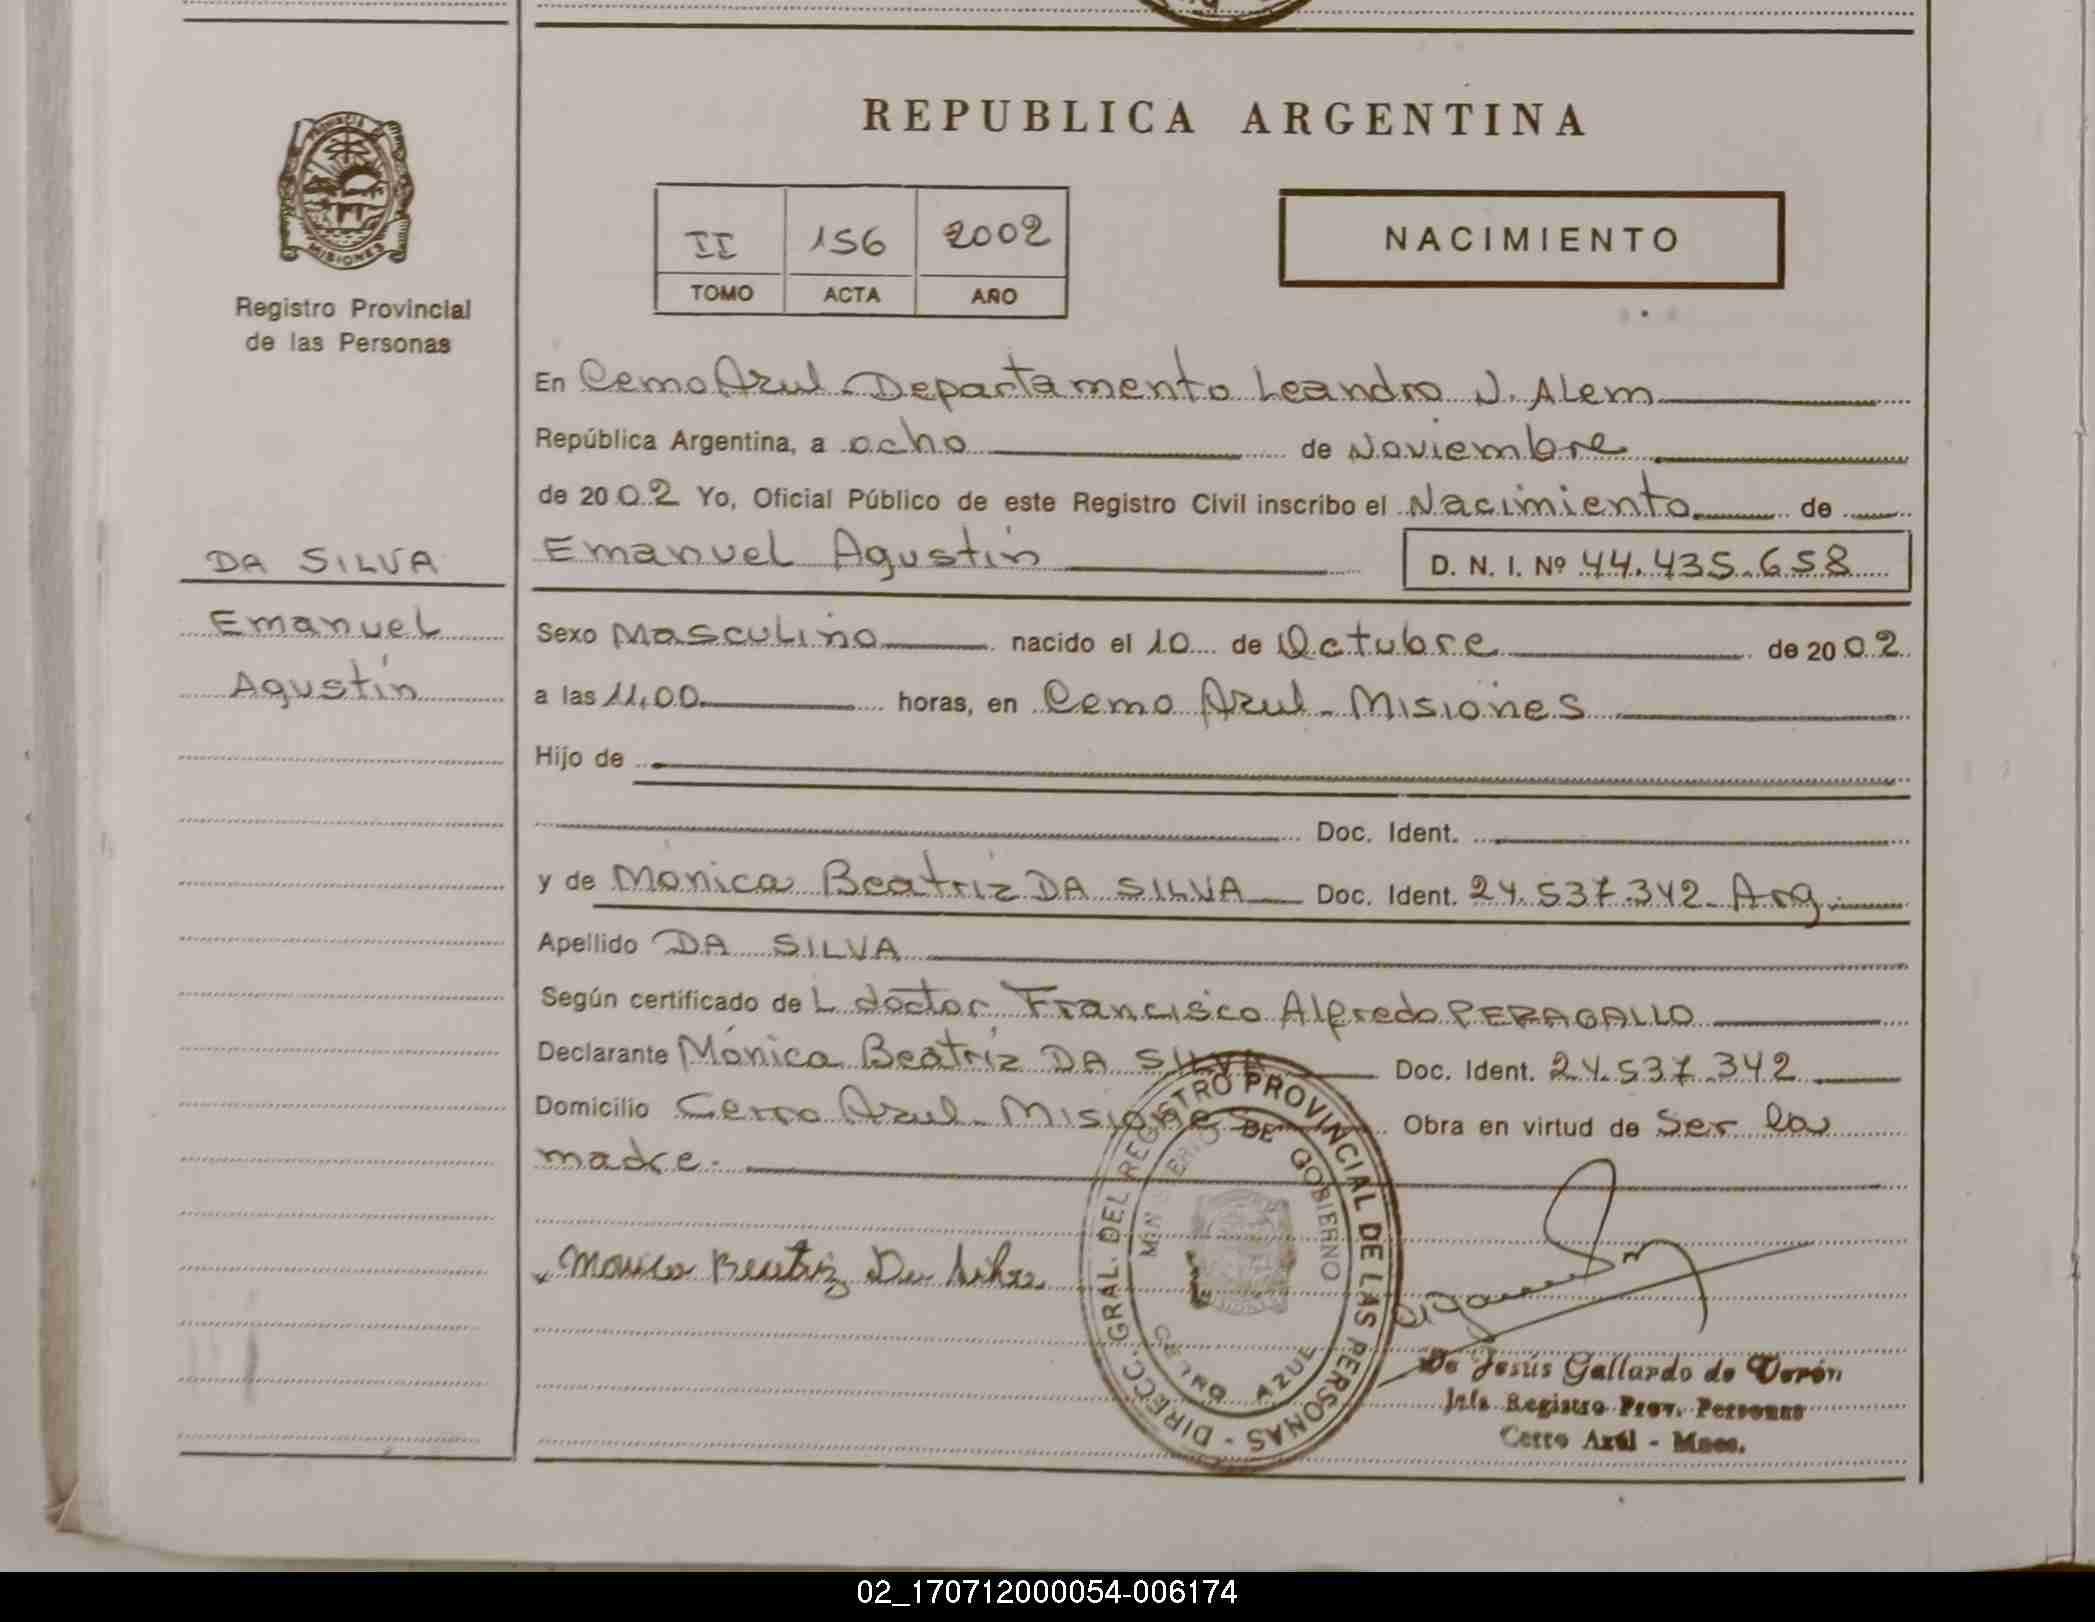 REPUBLICA ARGENTINA
II 156 2002
TOMO ACTA AÑO
NACIMIENTO
PROVINCIA DE
MISIONES
Registro Provincial
de las Personas
DA SILVA
Emanuel
Agustín
En Cerro Azul Departamento Leandro N. Alem
República Argentina, a ocho de Noviembre
de 2002 Yo, Oficial Público de este Registro Civil inscribo el Nacimiento de
Emanuel Agustín D. N. I. Nº 44.435.658
Sexo Masculino nacido el 10 de Octubre de 2002
a las 11,00 horas, en Cerro Azul - Misiones
Hijo de
Doc. Ident.
y de Mónica Beatriz DA SILVA Doc. Ident. 24.537.342- Arg.
Apellido DA SILVA
Según certificado del doctor Francisco Alfredo PERAGALLO
Declarante Mónica Beatriz DA SILVA Doc. Ident. 24.537.342
Domicilio Cerro Azul - Misiones Obra en virtud de Ser la
madre.
Monica Beatriz Da Silva
DIRECC. GRAL. DEL REGISTRO PROVINCIAL DE LAS PERSONAS -
MINISTERIO DE GOBIERNO
CERRO AZUL
De Jesús Gallardo de Verón
Jefa Registro Prov. Personas
Cerro Azul - Mnes.
02_170712000054-006174